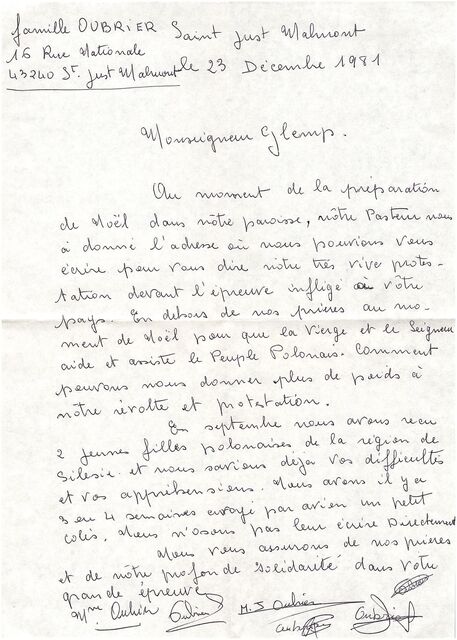 famille OUBRIER
Saint Just Malmont
16 Rue Nationale
43240 St. Just Malmont
le 23 Décembre 1981
Monseigneur Glemp.
Au moment de la préparation
de Noël dans nôtre paroisse, nôtre Pasteur nous
à donné l'adresse où nous pouvions vous
écrire pour vous dire nôtre très vive protes-
tation devant l'épreuve infligé à vôtre
pays. En dehors de nos prières au mo-
ment de Noël pour que la Vierge et le Seigneur
aide et assiste le Peuple Polonais. Comment
pouvons nous donner plus de poids à
nôtre révolte et protestation.
En septembre nous avons reçu
2 jeunes filles polonaises de la région de
Silésie et nous savions déja vos difficultés
et vos appréhensions. Nous avons il y a
3 ou 4 semaines envoyé par avion un petit
colis. Nous n'osons pas leur écrire Directement
Nous vous assurons de nos prières
et de nôtre profonde solidarité dans votre
grande épreuve
Mme Oubrier Oubrier M.J Oubrier
Oubrier